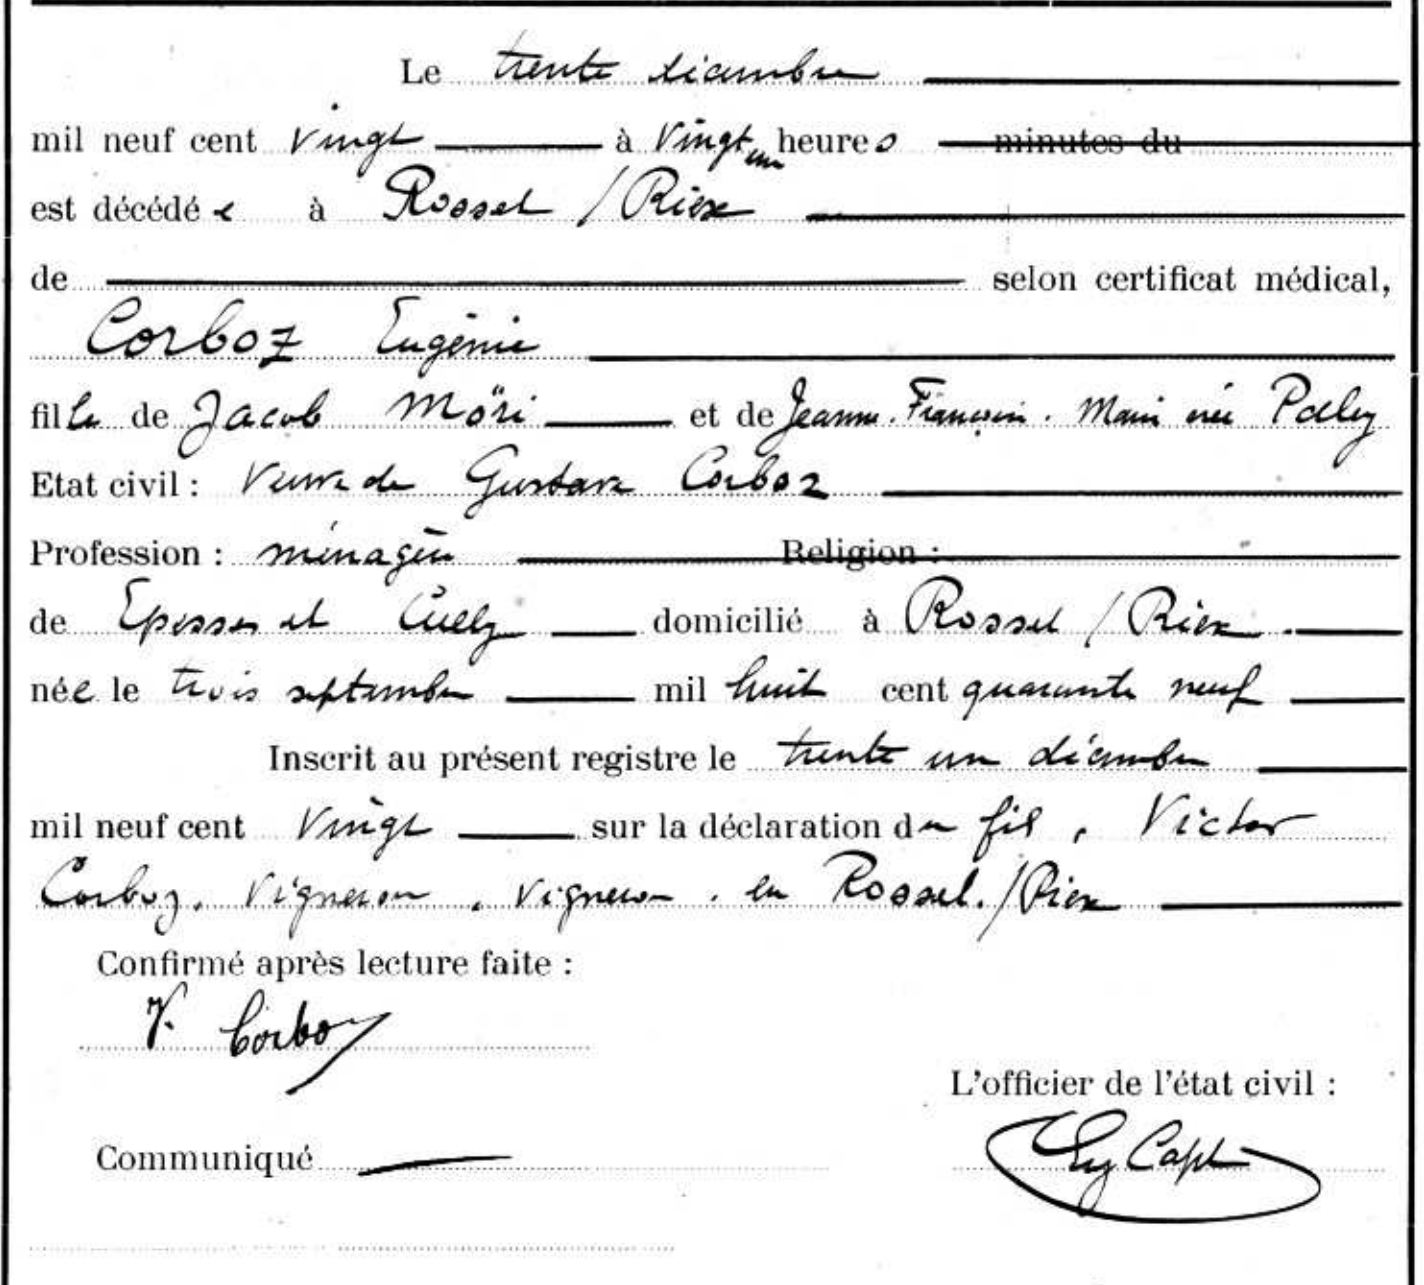 Le trente décembre
mil neuf cent vingt à vingt un heures minutes du
est décédée à Rossel / Riex
de selon certificat médical,
Corboz Eugénie
fille de Jacob Möri et de Jeanne. Françoise. Marie née Palley
Etat civil : Veuve de Gustave Corboz
Profession : ménagère Religion :
de Epesses et Cully domicilié à Rossel / Riex.
née le trois septembre mil huit cent quarante neuf
Inscrit au présent registre le trente un décembre
mil neuf cent vingt sur la déclaration du fils, Victor
Corboz, Vigneron, vigneron. en Rossel./Riex
Confirmé après lecture faite :
V. Corboz
L'officier de l'état civil :
Communiqué